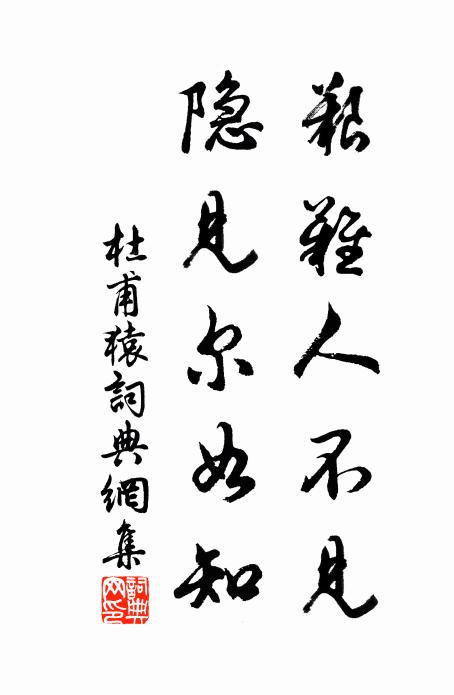 艱難人不見
隐見尔如知
杜甫猿詞典網集
詞典网印